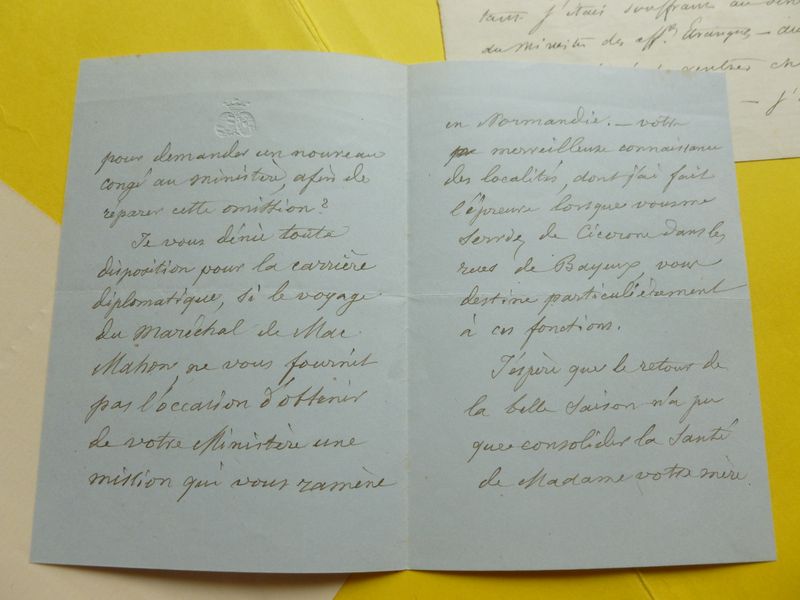 tant j'étais souffrant au
du Ministre des aff.res Etrangères —
pour demander un nouveau
congé au ministère, afin de
réparer cette omission?
Je vous dénie toute
disposition pour la carrière
diplomatique, si le voyage
du Maréchal de Mac
Mahon ne vous fournit
pas l'occasion d'obtenir
de votre Ministère une
mission qui vous ramène
en Normandie. — votre
merveilleuse connaissance
des localités, dont j'ai fait
l'épreuve lorsque vous me
serviez de Cicerone dans les
rues de Bayeux, vous
destine particulièrement
à ces fonctions.
J'espère que le retour de
la belle saison n'a pu
que consolider la santé
de Madame votre mère.